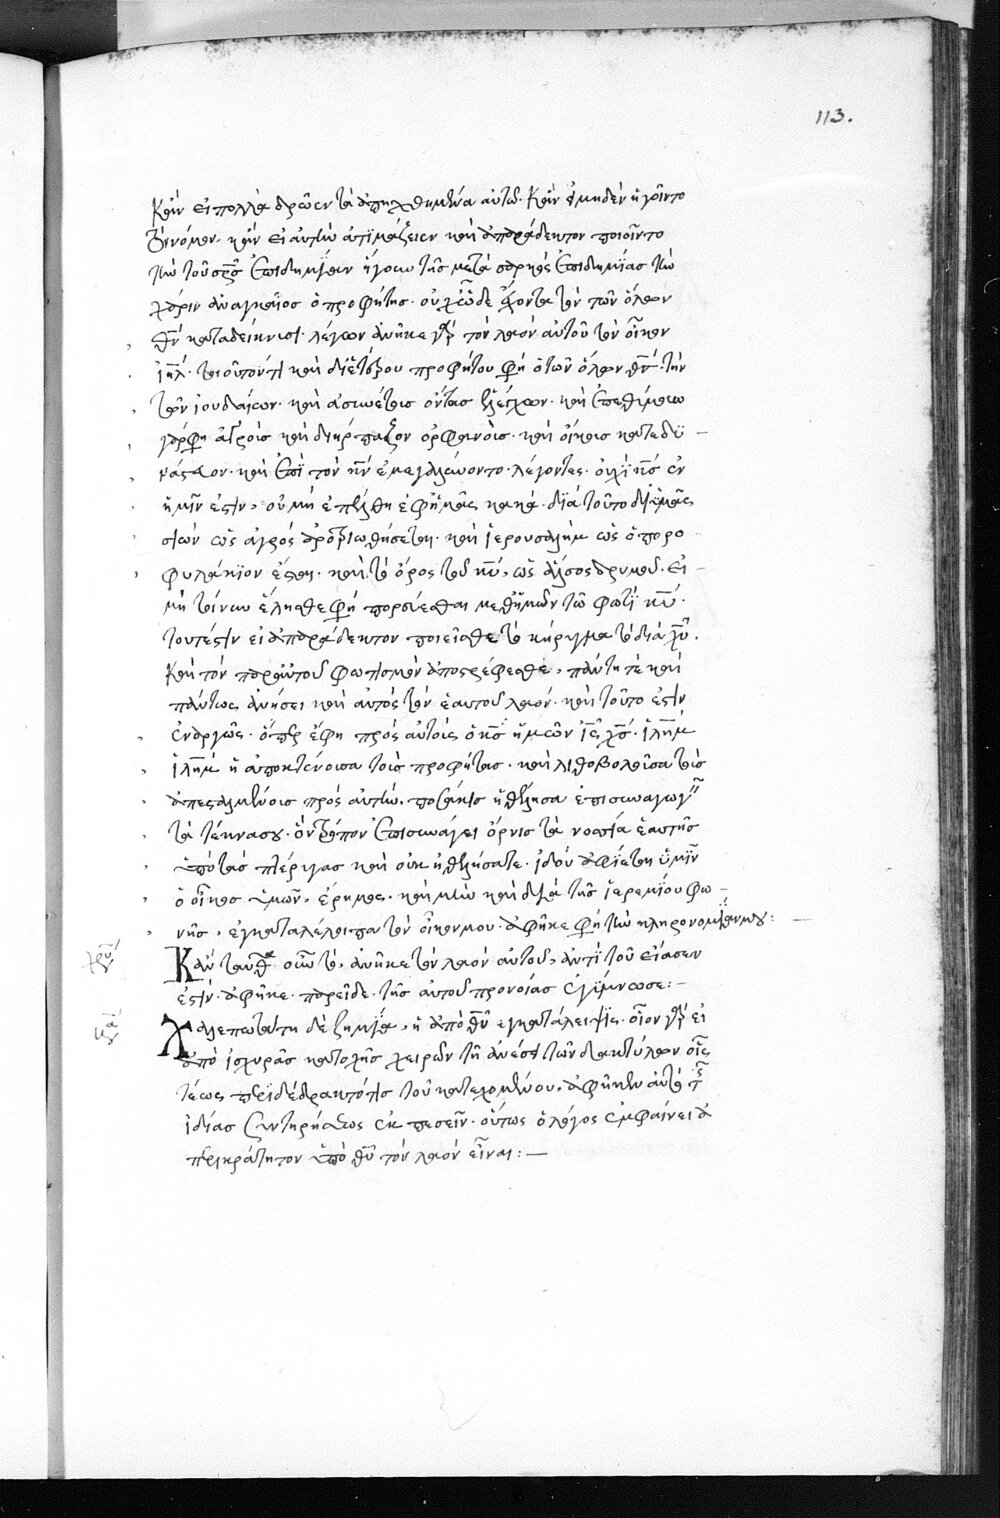 113.
κἂν εἰ πολλὰ δρῶεν τὰ ἀπηχθημένα αὐτῶ. κἂν εἰ μηδὲν ἡγοῖντο
τὸν νόμον. κἂν εἰ αὐτὴν ἀτιμάζειεν καὶ ἀπαράδεκτον ποιοῖντο
τὴν τοῦ σρσ ἐπιδημίαν ἤγουν τῆς μετὰ σαρκὸς ἐπιδημίας τὴν
χάριν ἀναγκαίως ὁ προφήτης. οὐχ ὧδε ἔχοντα τὸν τῶν ὅλων
θν καταδείκνυσι. λέγων ἀνῆκε γὰρ τὸν λαὸν αὐτοῦ τὸν οἶκον
ιηλ. τοιοῦτόν τι καὶ δι' ἑτέρου προφήτου φη ὁ τῶν ὅλων θς. τὴν
τῶν ἰουδαίων. καὶ ἀσυνέτους ὄντας ἐλέγχων. καὶ ἐπεθύμουν
γάρ φη ἀγροὺς καὶ διήρπαζον ὀρφανούς. καὶ οἴκους κατεδυ
νάστευον. καὶ ἐπὶ τὸν κν ἐμεγαλύνοντο. λέγοντες. οὐχὶ κς ἐν
ἡμῖν ἐστιν, οὐ μὴ ἐπέλθη ἐφ' ἡμᾶς κακά. διὰ τοῦτο δι' ὑμᾶς
σιὼν ὡς ἀγρὸς ἀροτριωθήσεται. καὶ ἱερουσαλὴμ ὡς ὀπωρο
φυλάκιον ἔσται. καὶ τὸ ὄρος τοῦ κυ, ὡς ἄλσος δρυμοῦ. εἰ
μὴ τοίνυν ἕλησθε φη πορεύεσθαι μεθ' ἡμῶν τῶ φωτὶ κυ.
τουτέστιν εἰ ἀπαράδεκτον ποιεῖσθε τὸ κήρυγμα τὸ διὰ χυ.
καὶ τὸν παρ' αὐτοῦ φωτισμὸν ἀποστρέφεσθε, πάντη τὲ καὶ
πάντως ἀνήσει καὶ αὐτὸς τὸν ἑαυτοῦ λαόν. καὶ τοῦτό ἐστιν
ἐναργῶς. ὅπερ ἔφη πρὸς αὐτοὺς ὁ κς ἡμῶν ις χς. ιλημ
ιλημ ἡ ἀποκτένουσα τοὺς προφήτας. καὶ λιθοβολοῦσα τοὺς
ἀπεσταλμένους πρὸς αὐτήν. ποσάκις ἠθέλησα ἐπισυναγαγεῖν
τὰ τέκνα σου. ὃν τρόπον ἐπισυνάγει ὄρνις τὰ νοσσία ἑαυτῆς
ὑπὸ τὰς πτέρυγας καὶ οὐκ ἠθελήσατε. ἰδοὺ ἀφίεται ὑμῖν
ὁ οἶκος ὑμῶν, ἔρημος. καὶ μὴν καὶ διὰ τῆς ἱερεμίου φω
νῆς, ἐγκαταλέλοιπα τὸν οἶκον μου. ἀφῆκε φη τὴν κληρονομίαν μου:
Κἀνταῦθα οὖν τὸ, ἀνῆκε τὸν λαὸν αὐτοῦ, ἀντὶ τοῦ εἴασεν
ἐστίν. ἀφῆκε. παρεῖδε. τῆς αὐτοῦ προνοίας ἐγύμνωσε:
Χαλεπωτάτη δὲ ζημία, ἡ ἀπὸ θυ ἐγκατάλειψις. οἷον γὰρ εἰ
ἀπὸ ἰσχυρᾶς κατοχῆς χειρῶν τῆ ἀνέσει τῶν δακτύλων οἷς
τέως περιδέδρακτό τις τοῦ κατεχομένου. ἀφῆκεν αὐτὸ τῆς
ἰδίας συντηρήσεως ἐκπεσεῖν. οὕτως ὁ λόγος ἐμφαίνει ἀ
περικράτητον ὑπὸ θυ τὸν λαὸν εἶναι: